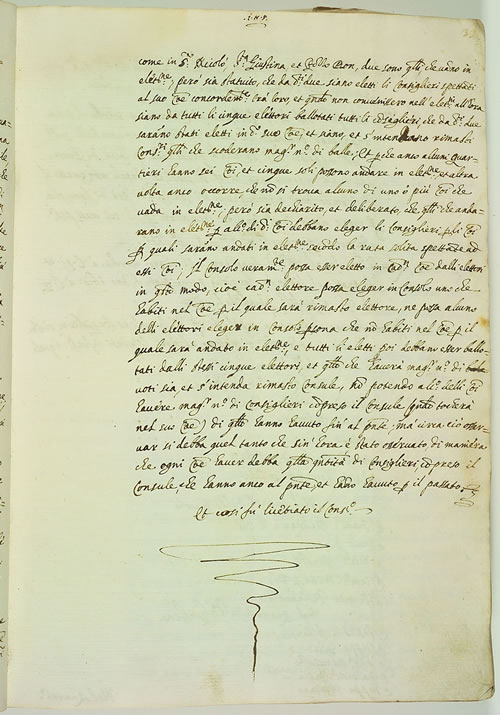 .I.H.S.
come in S. Nicolò, S.ta Giustina, et Stello Pion, due sono q̃lli che vãno in
elet.ne, però sia statuito, che da d.i due siano eletti li Consiglieri spettãti
al suo C̃oe concordem.te trà loro, et qñdo non convenissero nell'elet.ne all'hora
siano da tutti li cinque elettori ballotati tutti li cõsiglieri, che da d.i due
sarãno stati eletti in d.o suo C̃oe, et siano, et s'intendano rimasti
Cons.ri q̃lli che scoderano mag.r n.o di balle, Et p̱che anco alcuni quar-
tieri hanno sei C̃oi, et cinque soli possono andare in elet.ne et alcuna
volta anco occorre, che nõ si trova alcuno di uno ò più C̃oi che
vada in elet.ne, però sia dechiarito, et deliberato, che q̃lli che anda-
rano in elet.ne p̱ alc.i di d.i C̃oi debbano eleger li Consiglieri p̱ li C̃oi
p̱ quali sarãno andati in elet.ne secõdo la rata solita spettãte ad
essi C̃oi, Il Consolo veram.te possa esser eletto in cad.n C̃oe dalli elettori
in q̃sto modo, cioè cad.n elettore possa eleger in Consolo uno che
habiti nel C̃oe p̱ il quale sarà rimasto elettore, ne possa alcuno
delli elettori eleger in Consolo p̱sona che nõ habiti nel C̃oe p̱ il
quale sarà andato in elet.ne, e tutti li eletti poi debbano esser ballo-
tati dalli stessi cinque elettori, et q̃llo che haverà mag.r n.o di
voti sia, et s'intenda rimasto Consule, Nõ potendo alc.o delli C̃oi
havere mag.r n.o di Consiglieri cõpreso il Consule (qñdo toccherà
nel suo C̃oe) di q̃lli hanno havuto sin' al p̃nte, ma circa ciò osser-
var si debba quel tanto che sin'hora è stato osservato di maniera
che ogni C̃oe haver debba q̃lla q̃ntità di Consiglieri, cõpreso il
Consule, che hanno anco al p̃nte, et hãno havuto p̱ il passato.
Et così fù licẽtiato il Cons.o